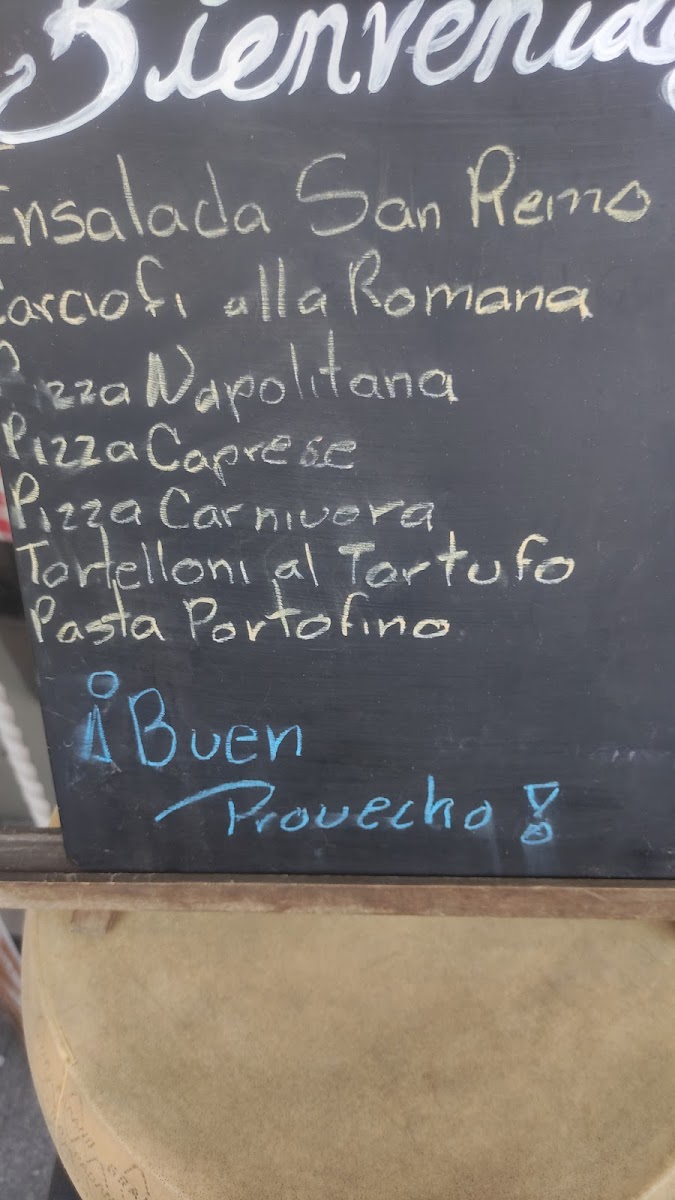 Bienvenido
Ensalada San Remo
Carciofi alla Romana
Pizza Napolitana
Pizza Caprese
Pizza Carnivora
Tortelloni al Tartufo
Pasta Portofino
¡Buen
Provecho!